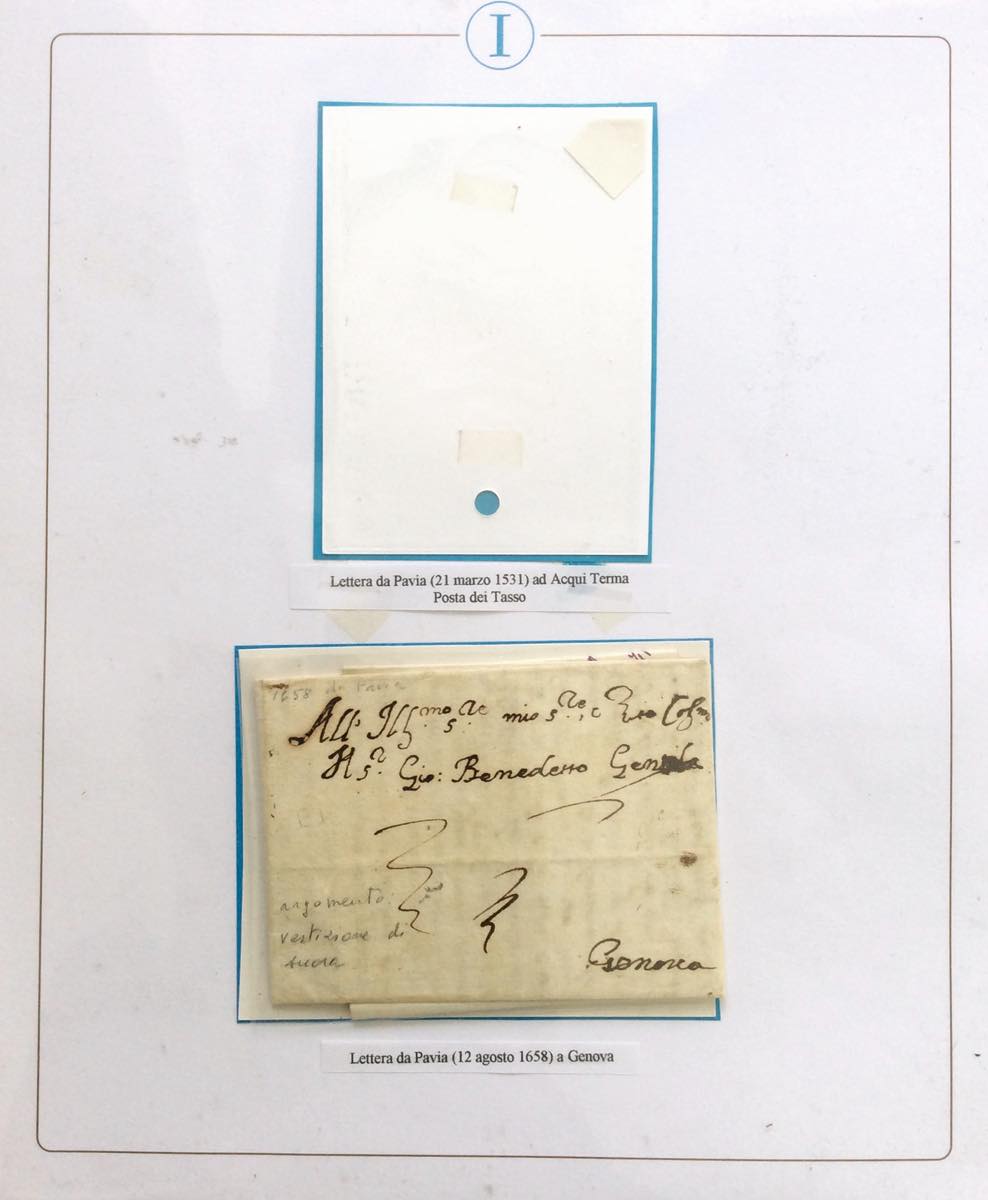 I
Lettera da Pavia (21 marzo 1531) ad Acqui Terma
Posta dei Tasso
1658 da Pavia
All' Ill.mo S.re mio S.re, e
Il S.r Gio: Benedetto Gentile
argomento:
vestizione di
suora
Genova
Lettera da Pavia (12 agosto 1658) a Genova